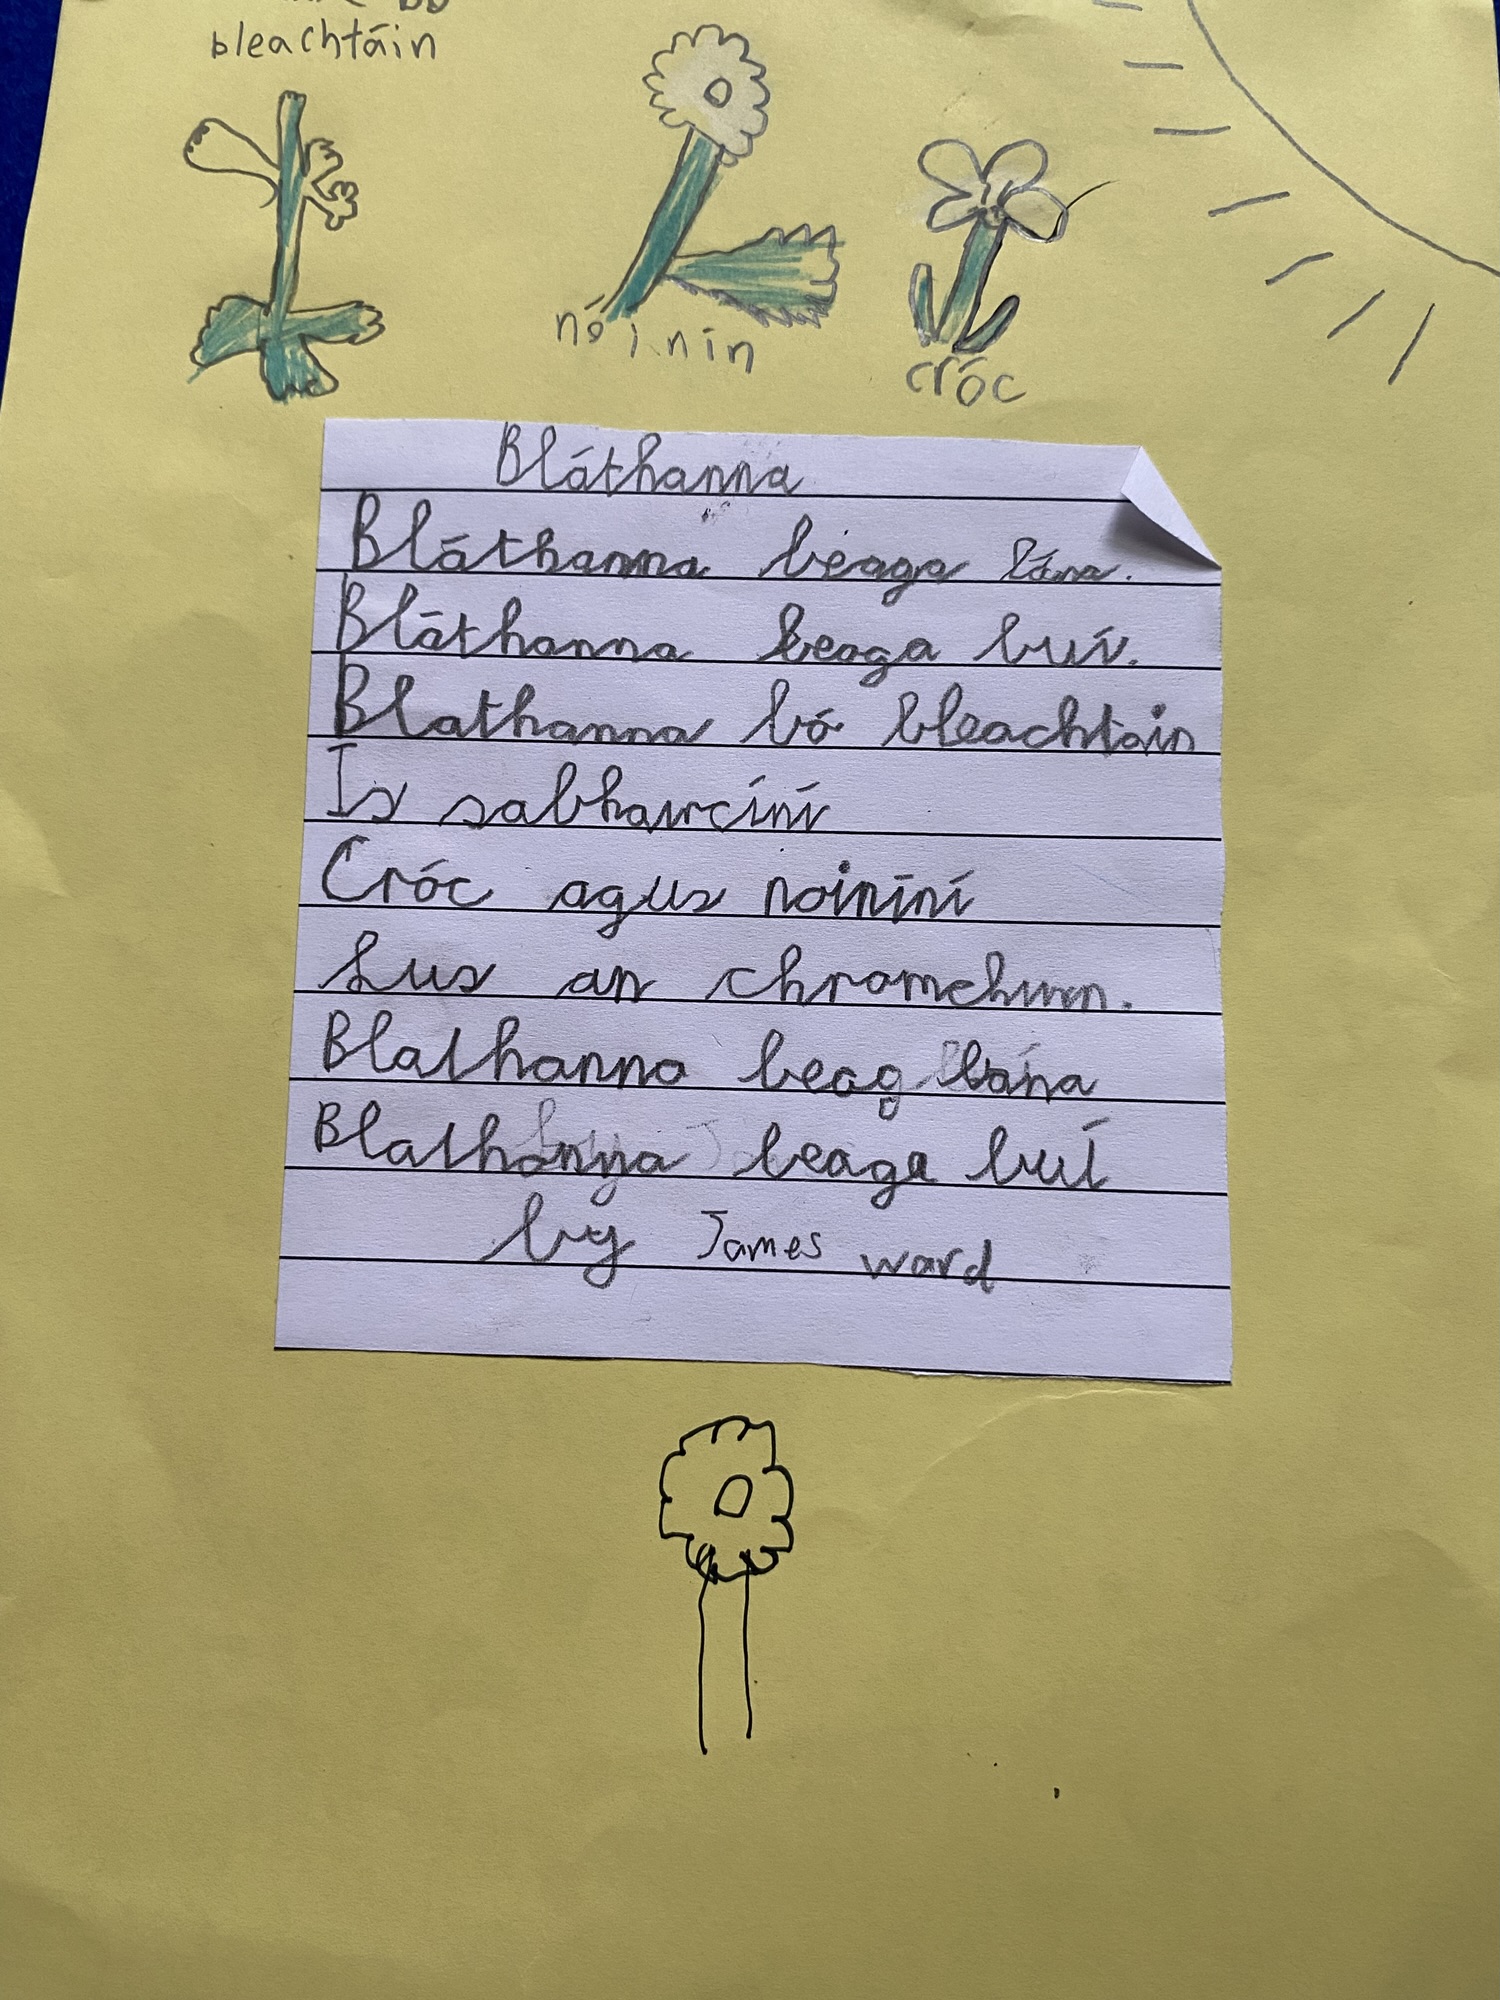 bleachtáin
nóinín
cróc
Bláthanna
Bláthanna beaga bána.
Bláthanna beaga buí.
Blathanna bó bleachtáin
Is sabhaircíní
Cróc agus noíníní
Lus an chromchinn.
Blathanna beag bána
Blathanna beaga buí
by James ward